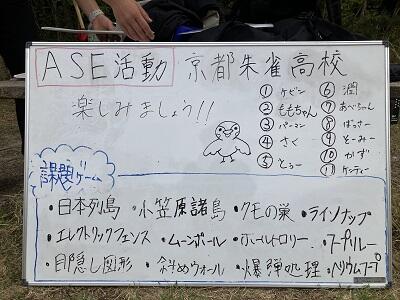 ASE活動 京都朱雀高校
楽しみましょう!!
① ケビン
② ももちゃん
③ パーマン
④ さく
⑤ とぅー
⑥ 潤
⑦ あべちゃん
⑧ ばっさー
⑨ そーみー
⑩ かず
⑪ ケンティー
課題ゲーム
・日本列島 ・小笠原諸島 ・クモの巣 ・ライソナップ
・エレクトリックフェンス ・ムーンボール ・ホールトロリー ・フープリレー
・目隠し図形 ・斜めウォール ・爆弾処理 ・ヘリウムフープ